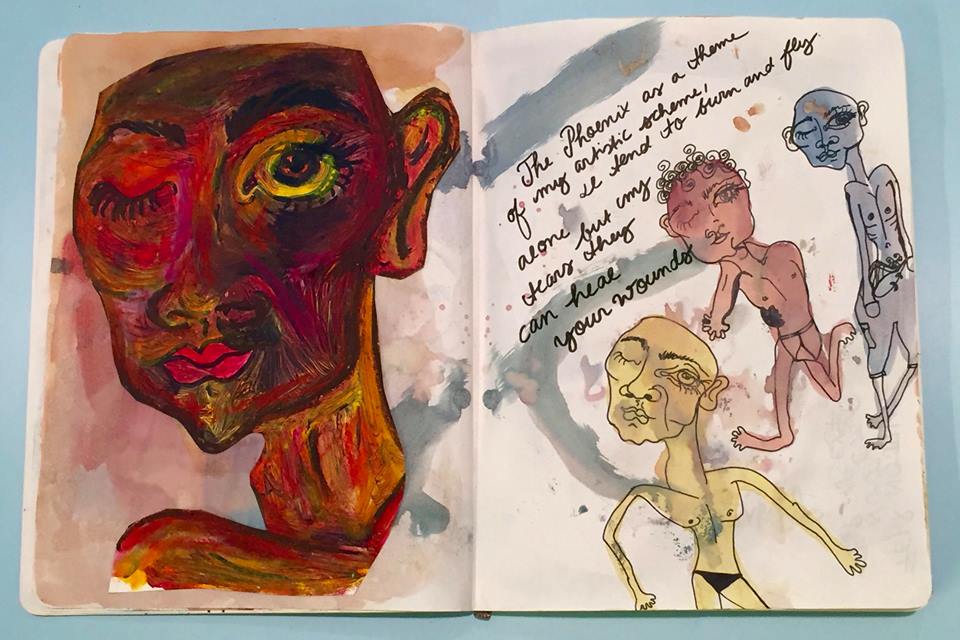 The Phoenix as a theme
of my artistic scheme,
I tend to burn and fly
alone but my
tears they
can heal
your wounds